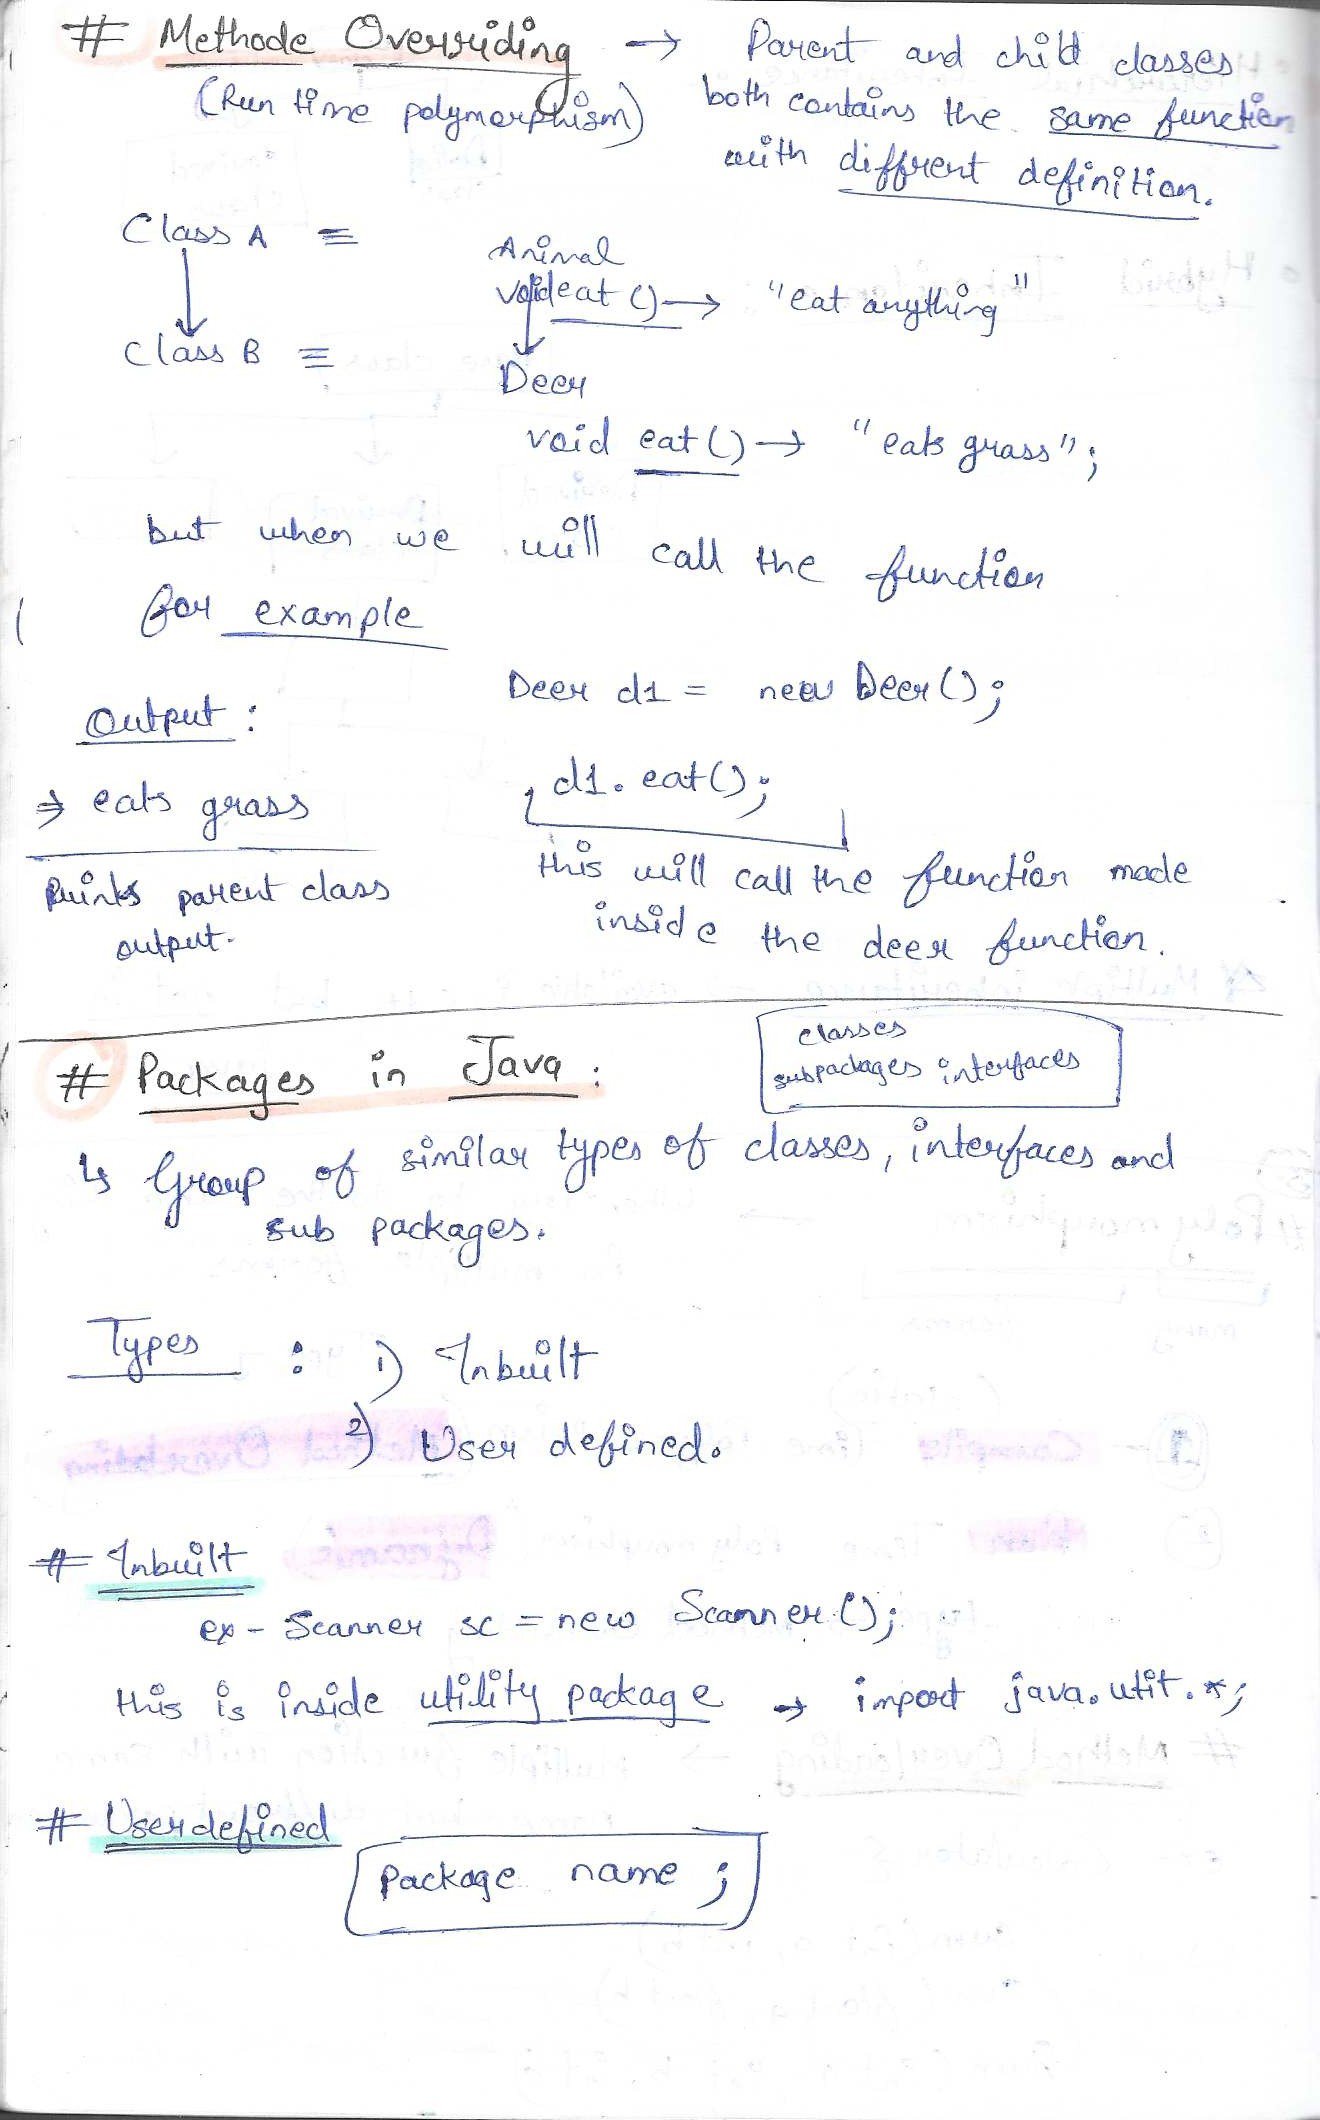 # Methode Overriding → Parent and child classes
(Run time polymorphism) both contains the same function
with diffrent definition.
Class A ≡ Animal
void eat () → "eat anything"
Class B ≡ Deer
void eat () → "eats grass";
but when we will call the function
for example
Deer d1 = new Deer();
Output :
d1. eat();
⇒ eats grass
this will call the function made
inside the deer function.
Prints parent class
output.
# Packages in Java :
classes
subpackages interfaces
↳ Group of similar types of classes, interfaces and
sub packages.
Types : 1) Inbuilt
2) User defined.
# Inbuilt
ex - Scanner sc = new Scanner ();
this is inside utility package → import java.utit.*;
# User defined
Package name ;